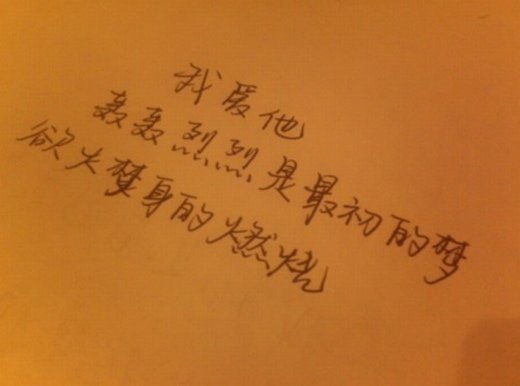 我爱他
轰轰烈烈是最初的梦
欲火梦身的燃烧